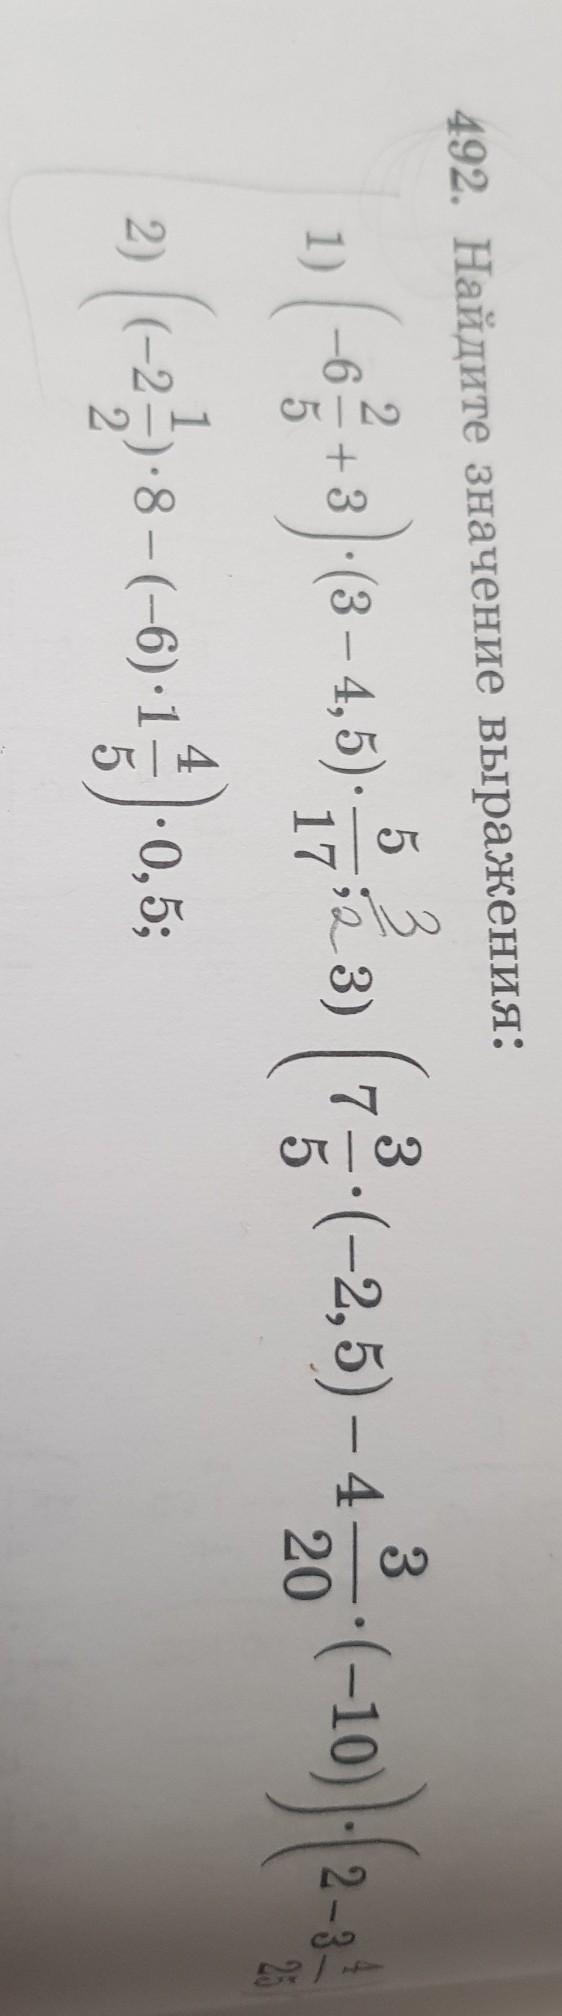 492. Найдите значение выражения:
1) (-6 2/5 + 3) · (3 – 4,5) · 5/17; 3/2 3) (7 3/5 · (–2,5) – 4 3/20 · (–10)) · (2 – 3 4/25
2) ((–2 1/2) · 8 – (–6) · 1 4/5) · 0,5;